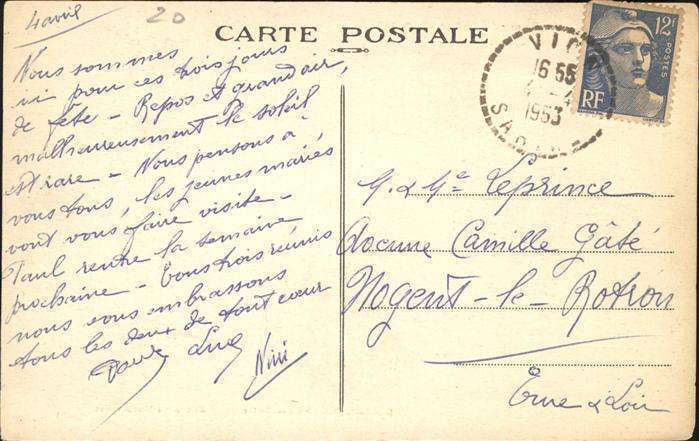 4 avril
20
CARTE POSTALE
Nous sommes
ici pour ces trois jours
de fête - Repos et grand air,
malheureusement le soleil
est rare - Nous pensons à
vous tous, les jeunes mariés
vont vous faire visite -
Paul rentre la semaine
prochaine - Tous trois réunis
nous vous embrassons
tous les deux de tout cœur
Luc
Nini
12F
POSTES
RF
16 55
4
1953
SARTHE
M. & Me Leprince
Avenue Camille Gâté
Nogent-le-Rotrou
Eure & Loir